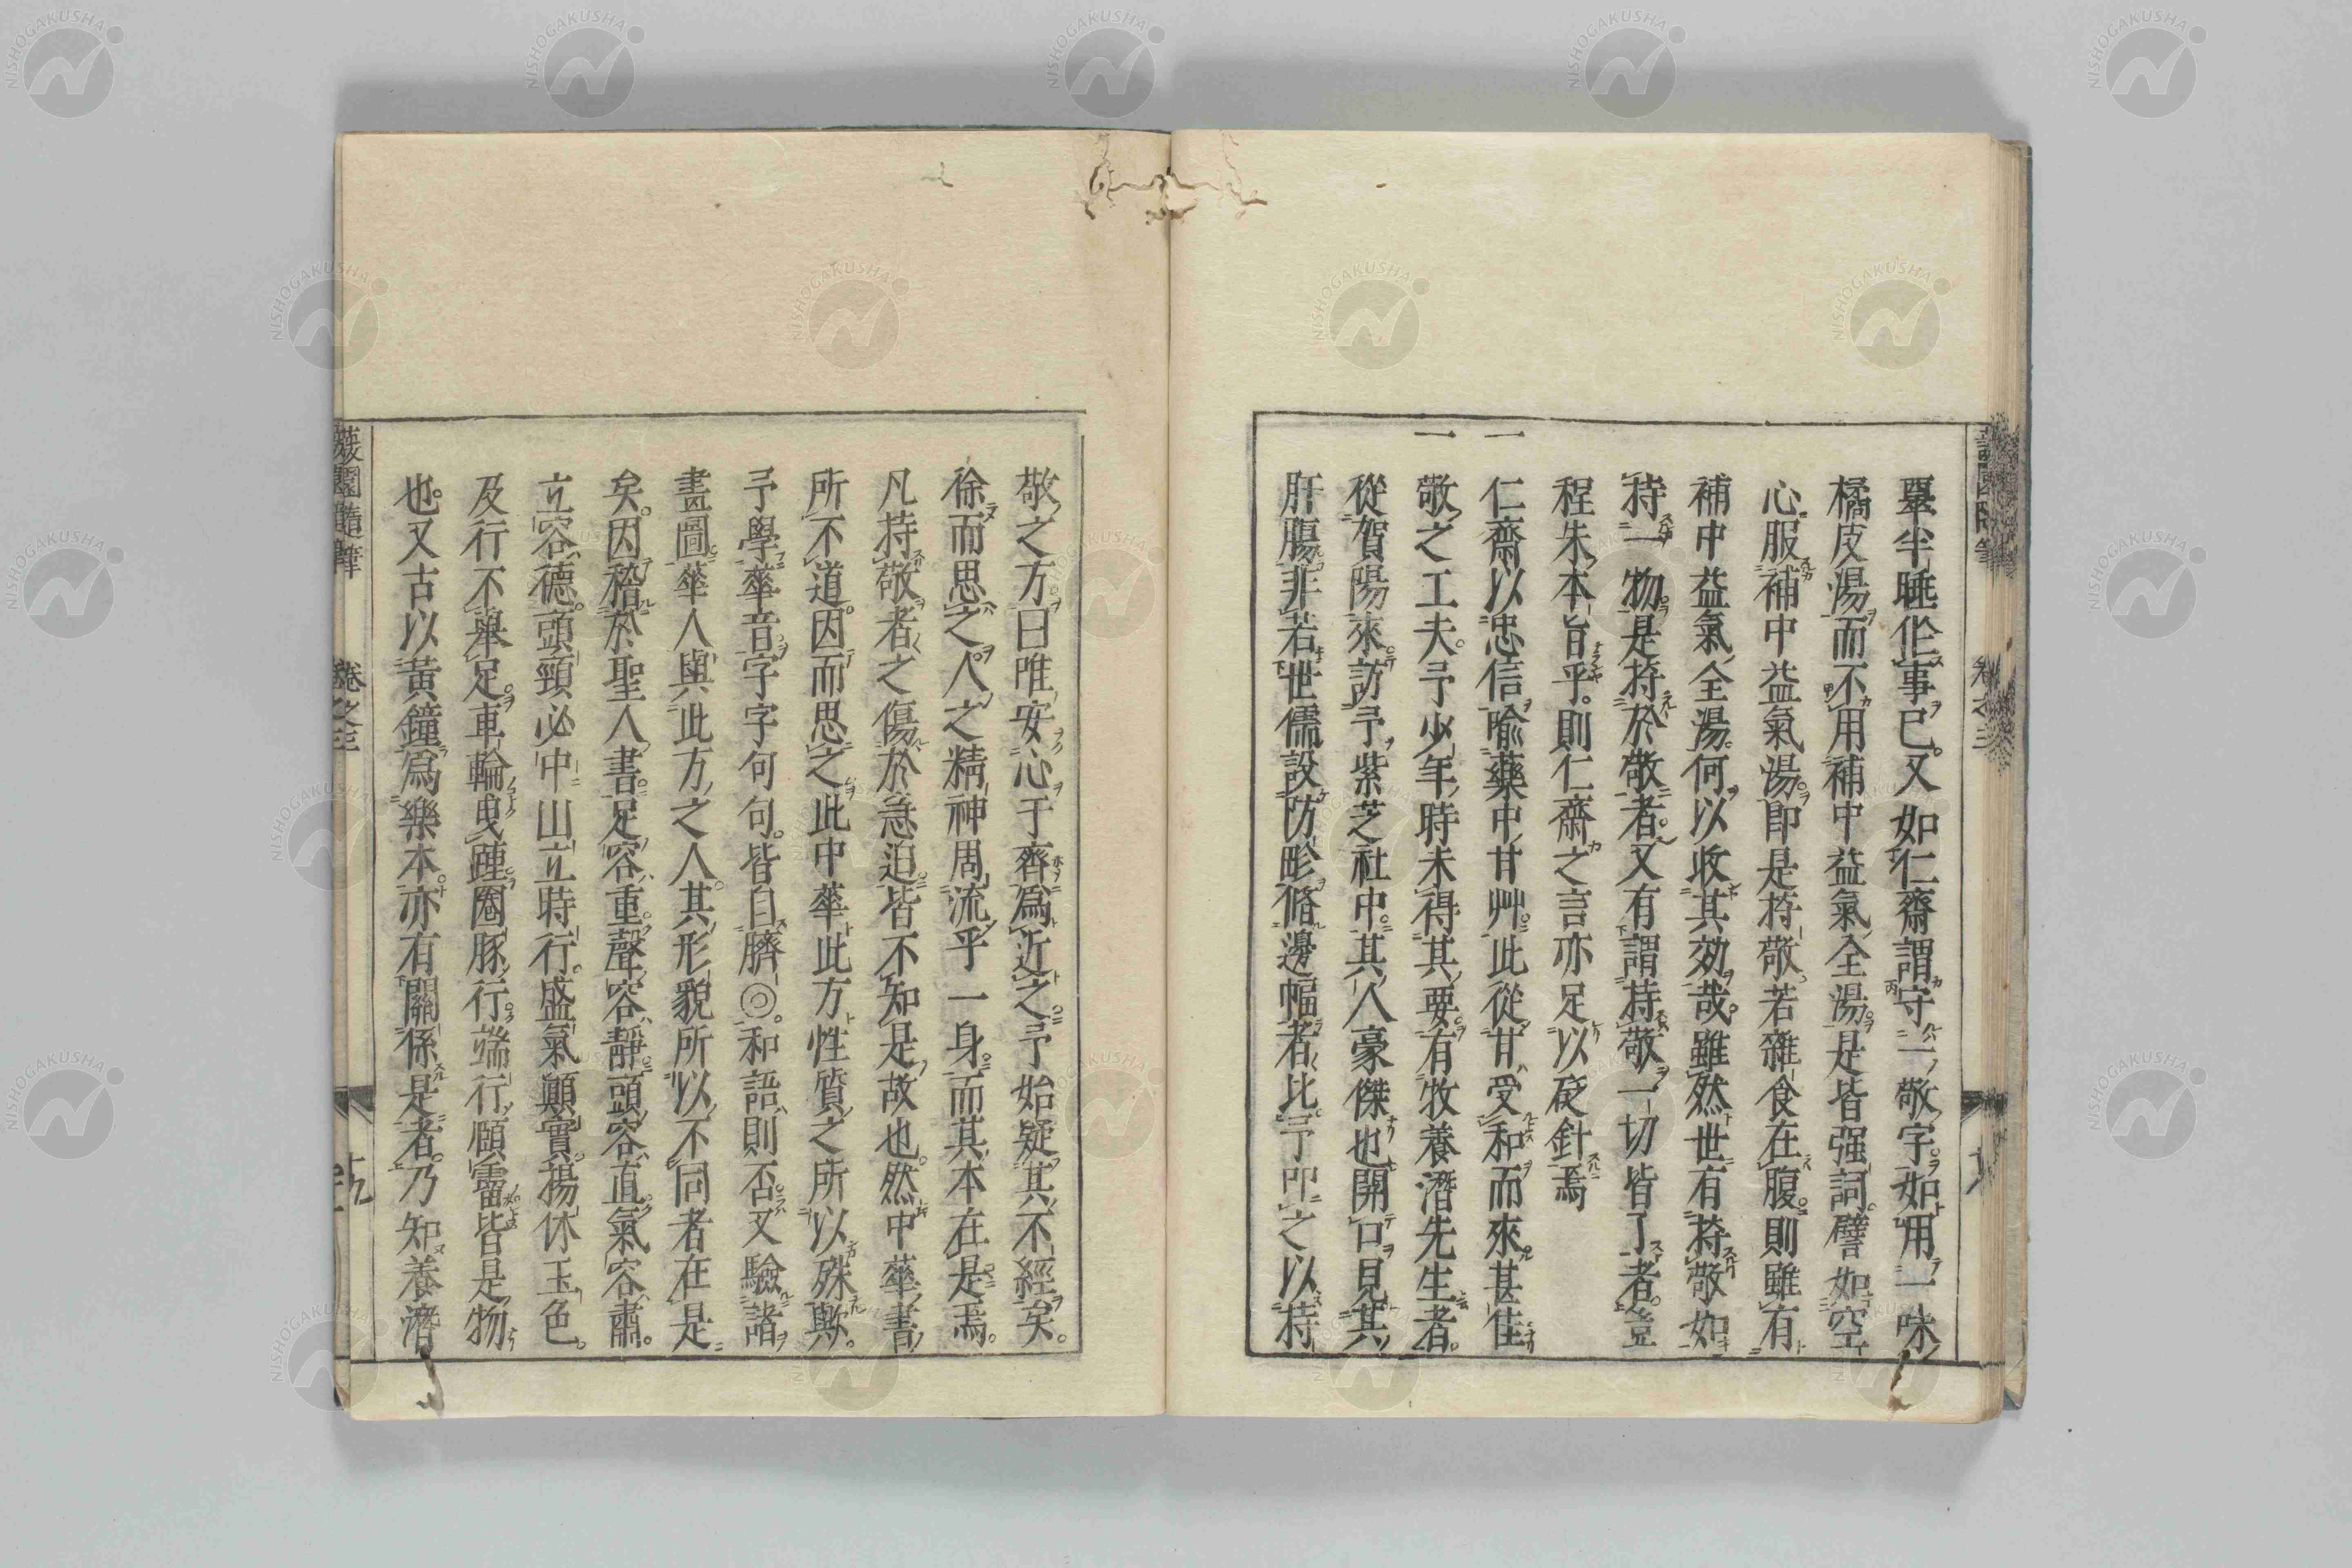 畢半睡做事已又如仁齋謂守一敬字如用一味
橘皮湯而不用補中益氣全湯是皆强詞譬如空
心服補中益氣湯即是持敬若雜食在腹則雖有
補中益氣全湯何以收其效哉雖然世有持敬如
持一物是持於敬者又有謂持敬一切皆了者豈
程朱本旨乎則仁齋之言亦足以砭針焉
一仁齋以忠信喻藥中甘艸此從甘受和而來甚佳
一敬之工夫予少年時未得其要有牧養潛先生者
從賀陽來訪予紫芝社中其人豪傑也開口見其
肝腸非若世儒設防畛脩邊幅者比予叩之以持
敬之方曰唯安心于齊爲近之予始疑其不經矣
徐而思之人之精神周流乎一身而其本在是焉
凡持敬者之傷於急迫皆不知是故也然中華書
所不道因而思之此中華此方性質之所以殊歟
予學華音字字句句皆自臍◎和語則否又驗諸
畫圖華人與此方之人其形貌所以不同者在是
矣因稽於聖人書足容重聲容靜頭容直氣容肅
立容德頭頸必中山立時行盛氣顚實揚休玉色
及行不舉足車輪曳踵圈豚行端行頤霤皆是物
也又古以黃鐘爲樂本亦有關係是者乃知養潛
蘐園隨筆
卷之三
十九